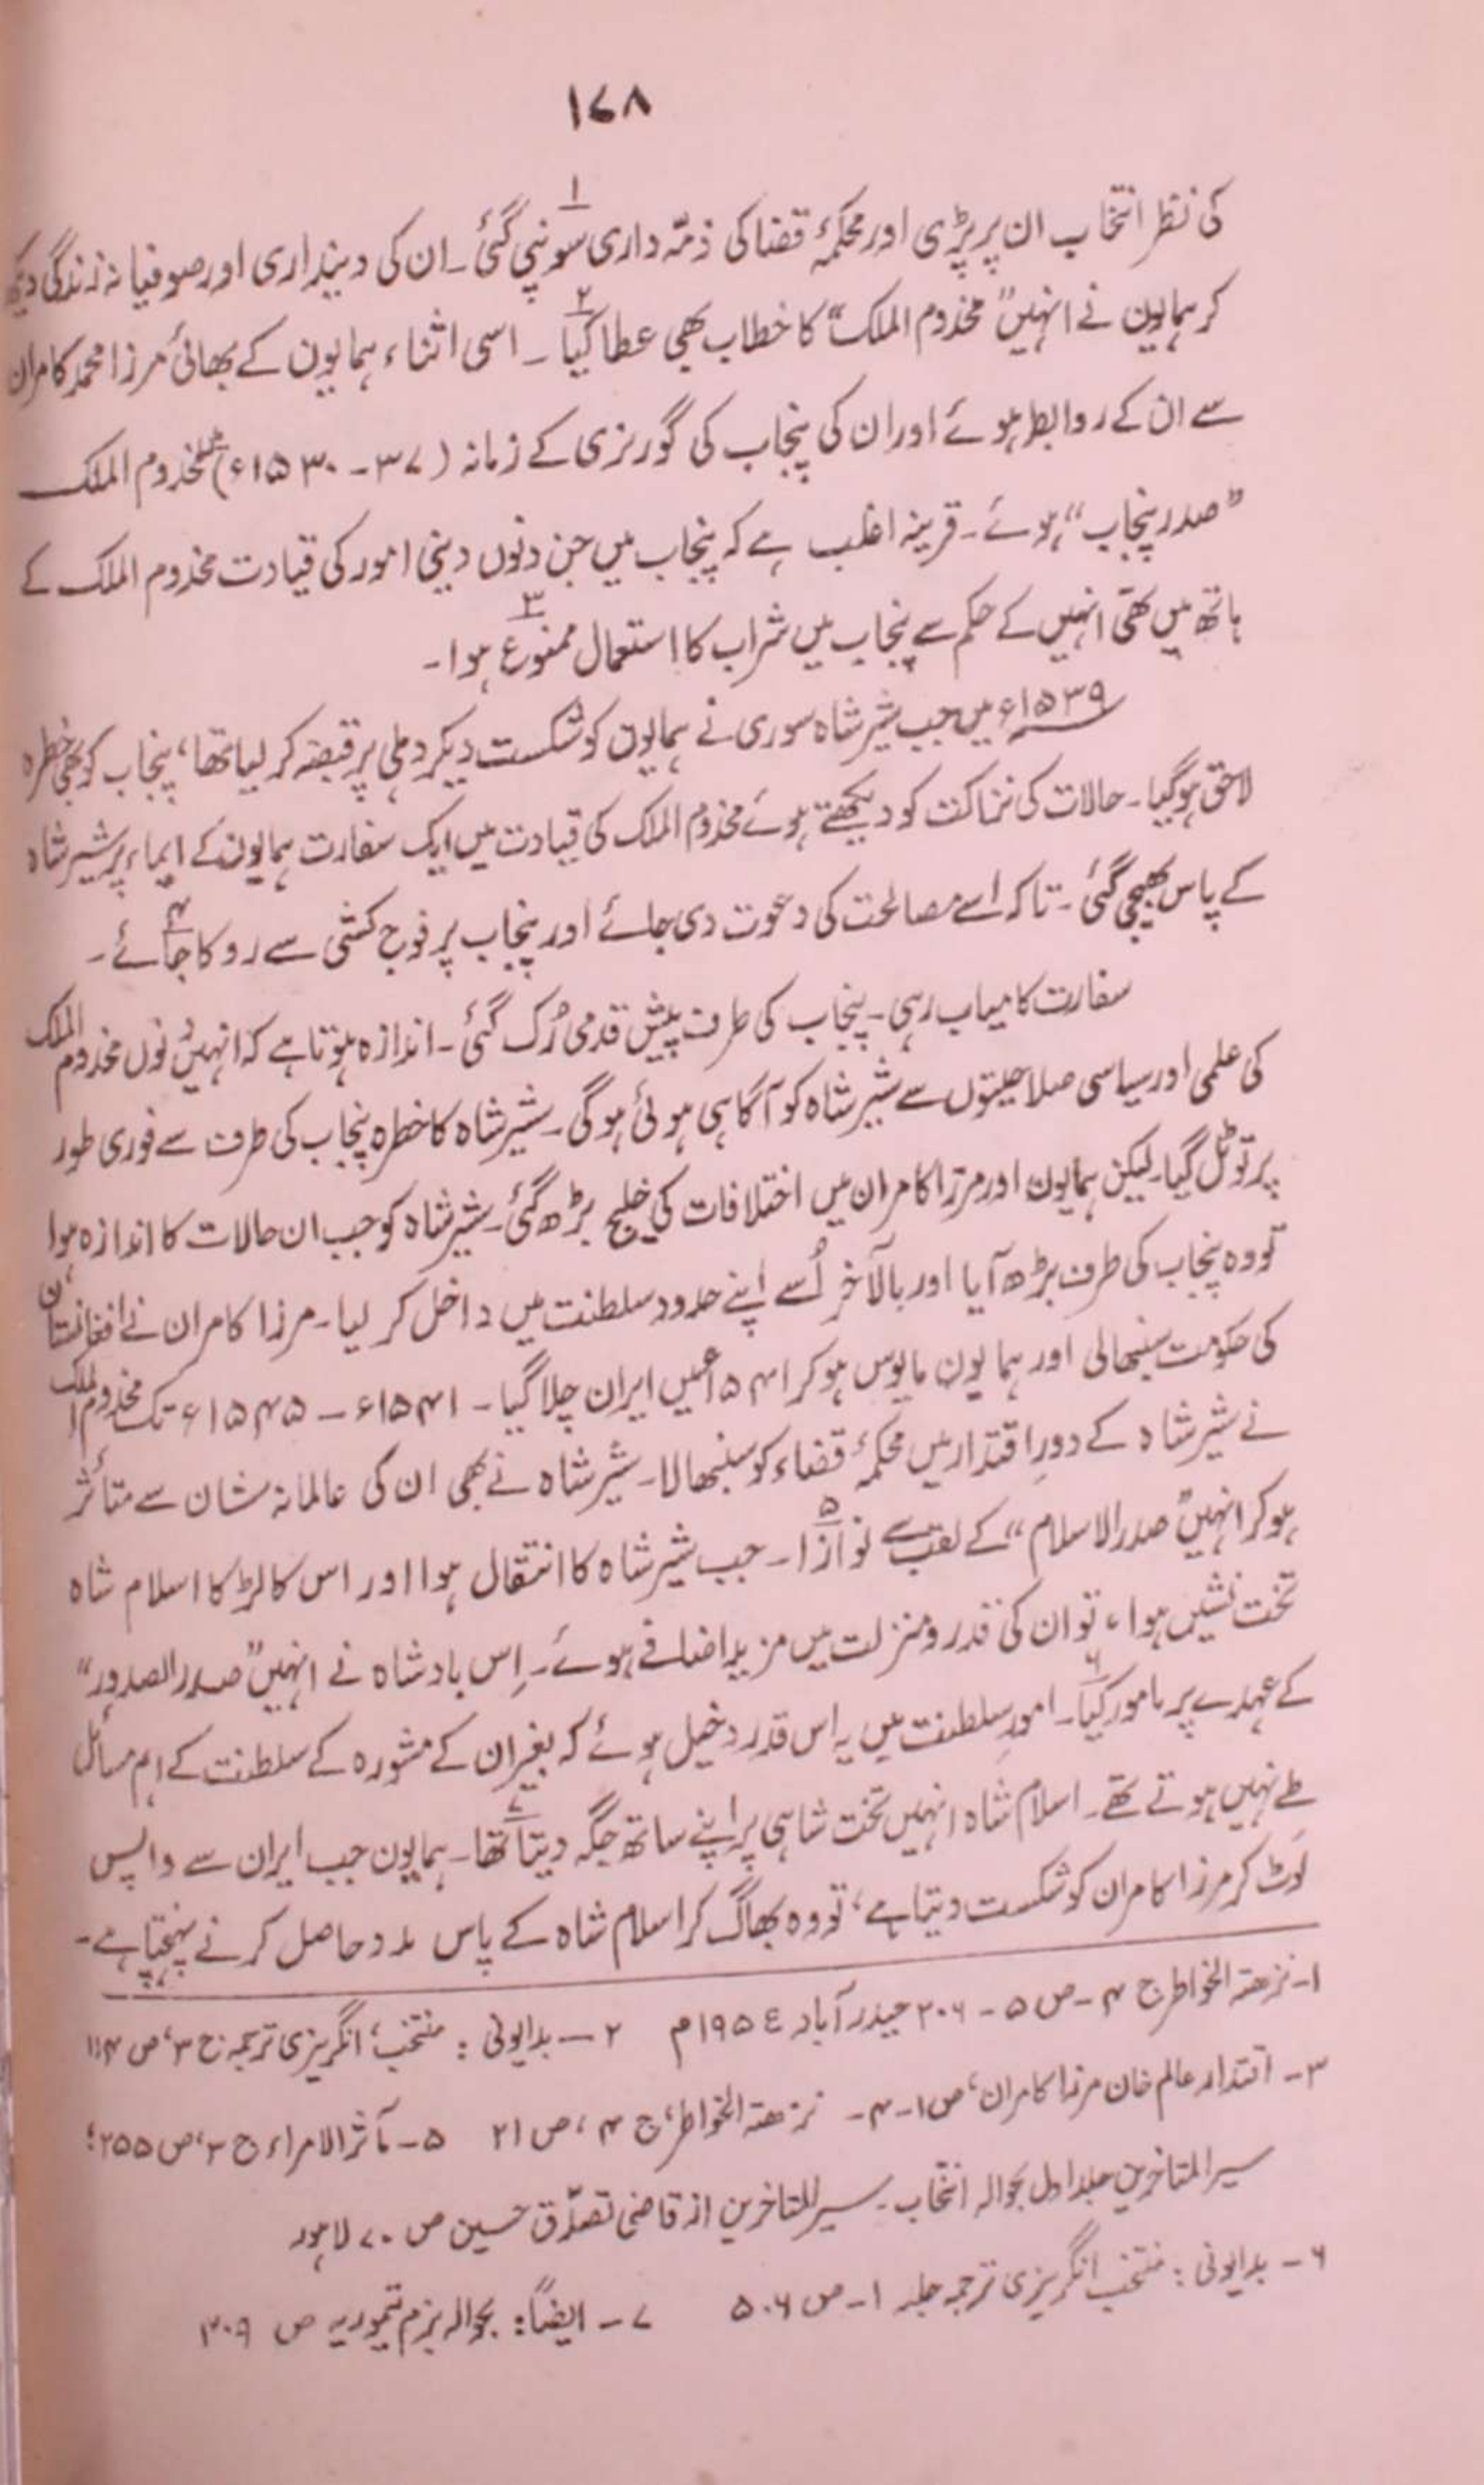 ۱۷۸
کی نظر انتخاب ان پر پڑی اور محکمۂ قضا کی ذمّہ داری سونپی گئی۱۔ ان کی دینداری اور صوفیانہ زندگی دیکھ
کر ہمایون نے انہیں "مخدوم الملک" کا خطاب بھی عطا کیا۲۔ اسی اثناء ہمایون کے بھائی مرزا محمد کامران
سے ان کے روابط ہوئے اور ان کی پنجاب کی گورنری کے زمانہ (۳۷ - ۱۵۳۰ء) میں مخدوم الملک
"صدر پنجاب" ہوئے۔ قرینہ اغلب ہے کہ پنجاب میں جن دنوں دینی امور کی قیادت مخدوم الملک کے
ہاتھ میں تھی انہیں کے حکم سے پنجاب میں شراب کا استعمال ممنوع۳ ہوا۔
۱۵۳۹ء میں جب شیر شاہ سوری نے ہمایوں کو شکست دیکر دہلی پر قبضہ کر لیا تھا، پنجاب کو بھی خطرہ
لاحق ہوگیا۔ حالات کی نزاکت کو دیکھتے ہوئے مخدوم الملک کی قیادت میں ایک سفارت ہمایوں کے ایماء پر شیر شاہ
کے پاس بھیجی گئی۔ تاکہ اسے مصالحت کی دعوت دی جائے اور پنجاب پر فوج کشی سے روکا جائے۴۔
سفارت کامیاب رہی۔ پنجاب کی طرف پیش قدمی رُک گئی۔ اندازہ ہوتا ہے کہ انہیں دنوں مخدوم الملک
کی علمی اور سیاسی صلاحیتوں سے شیر شاہ کو آگاہی ہوئی ہوگی۔ شیر شاہ کا خطرہ پنجاب کی طرف سے فوری طور
پر تو ٹل گیا۔ لیکن ہمایون اور مرزا کامران میں اختلافات کی خلیج بڑھ گئی۔ شیر شاہ کو جب ان حالات کا اندازہ ہوا
تو وہ پنجاب کی طرف بڑھ آیا اور بالآخر اُسے اپنے حدود سلطنت میں داخل کر لیا۔ مرزا کامران نے افغانستان
کی حکومت سنبھالی اور ہمایون مایوس ہوکر ۱۵۴۱ء میں ایران چلا گیا۔ ۱۵۴۱ء – ۱۵۴۵ء تک مخدوم الملک
نے شیر شاہ کے دورِ اقتدار میں محکمۂ قضاء کو سنبھالا۔ شیر شاہ نے بھی ان کی عالمانہ شان سے متأثر
ہوکر انہیں "صدر الاسلام" کے لقب سے نوازا۵۔ جب شیر شاہ کا انتقال ہوا اور اس کا لڑکا اسلام شاہ
تخت نشیں ہوا، تو ان کی قدر و منزلت میں مزید اضافے ہوئے۔ اِس بادشاہ نے انہیں "صدر الصدور"
کے عہدے پر مامور کیا۶۔ امورِ سلطنت میں یہ اس قدر دخیل ہوئے کہ بغیر ان کے مشورہ کے سلطنت کے اہم مسائل
طے نہیں ہوتے تھے۔ اسلام شاہ انہیں تخت شاہی پر اپنے ساتھ جگہ دیتا تھا۷۔ ہمایون جب ایران سے واپس
لوٹ کر مرزا کامران کو شکست دیتا ہے، تو وہ بھاگ کر اسلام شاہ کے پاس مدد حاصل کرنے پہنچتا ہے۔
۱- نزھۃ الخواطر ج ۴ - ص ۵ - ۲۰۶ حیدر آباد ۱۹۵٤م ۲ – بدایونی : منتخب، انگریزی ترجمہ ج ۳، ص ۱۱۴
۳- اقتدار عالم خان مرزا کامران، ص ۱-۴- نزھۃ الخواطر، ج ۴، ص ۲۱ ۵ - مآثر الامراء ج ۳، ص ۲۵۵؛
سیر المتاخرین جلد اول بحوالہ انتخاب - سیر المتاخرین از قاضی تصدّق حسین ص ۷۰ لاہور
۶ - بدایونی : منتخب انگریزی ترجمہ جلد ۱ - ص ۵۰۶ ۷ - ایضاً: بحوالہ بزم تیموریہ ص ۳۰۹